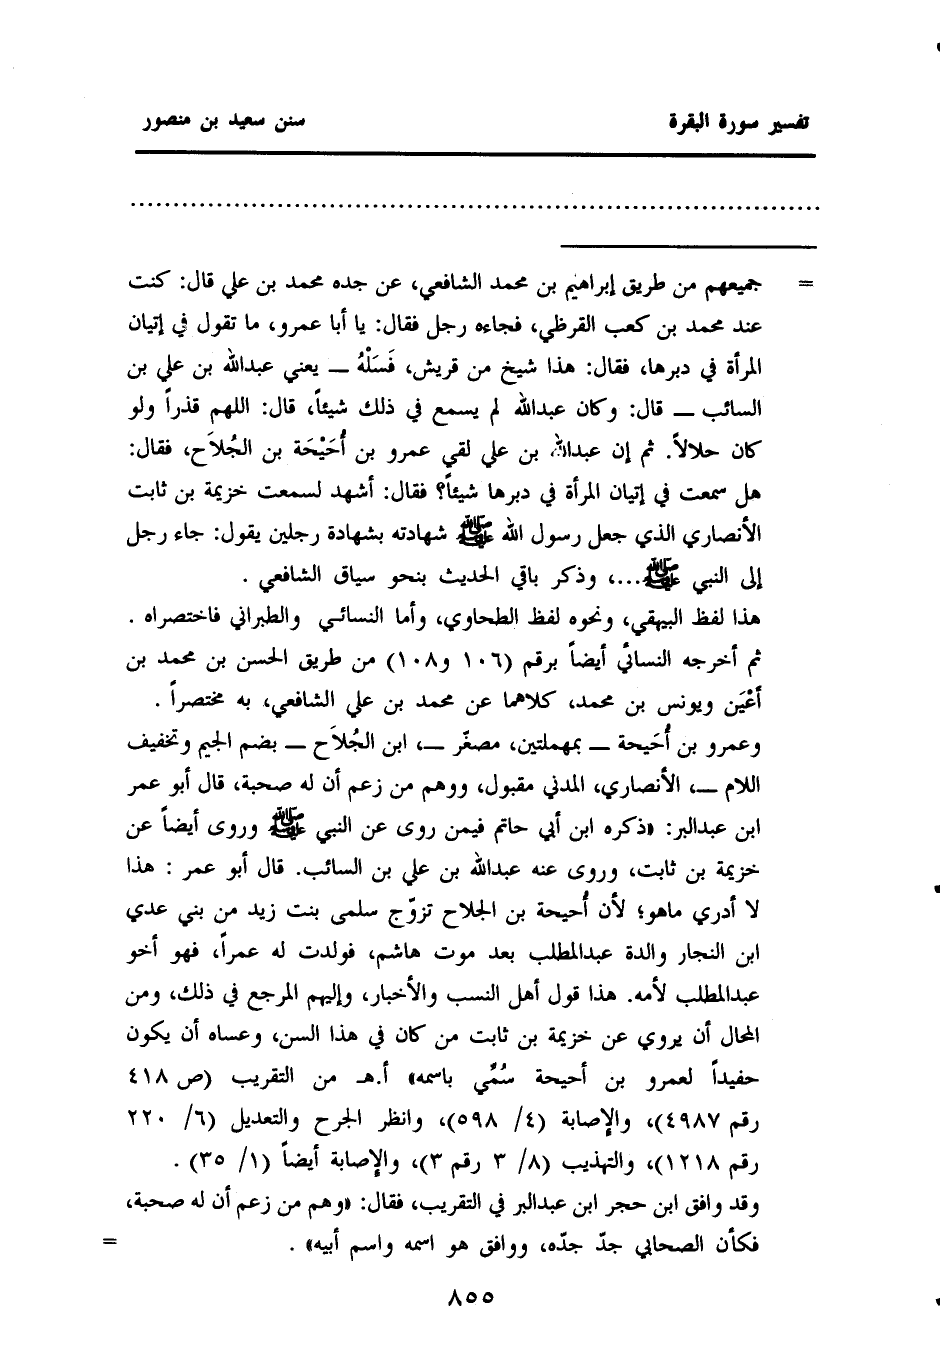 تفسير سورة البقرة سنن سعيد بن منصور
= جميعهم من طريق إبراهيم بن محمد الشافعي، عن جده محمد بن علي قال: كنت
عند محمد بن كعب القرظي، فجاءه رجل فقال: يا أبا عمرو، ما تقول في إتيان
المرأة في دبرها، فقال: هذا شيخ من قريش، فَسَلْهُ ــ يعني عبدالله بن علي بن
السائب ــ قال: وكان عبدالله لم يسمع في ذلك شيئاً، قال: اللهم قذراً ولو
كان حلالاً. ثم إن عبدالله بن علي لقي عمرو بن أُحَيْحَة بن الجُلاَح، فقال:
هل سمعت في إتيان المرأة في دبرها شيئاً؟ فقال: أشهد لسمعت خزيمة بن ثابت
الأنصاري الذي جعل رسول الله ﷺ شهادته بشهادة رجلين يقول: جاء رجل
إلى النبي ﷺ...، وذكر باقي الحديث بنحو سياق الشافعي .
هذا لفظ البيهقي، ونحوه لفظ الطحاوي، وأما النسائي والطبراني فاختصراه .
ثم أخرجه النسائي أيضاً برقم (١٠٦ و١٠٨) من طريق الحسن بن محمد بن
أَعْيَن ويونس بن محمد، كلاهما عن محمد بن علي الشافعي، به مختصراً .
وعمرو بن أُحَيحة ــ بمهملتين، مصغّر ــ، ابن الجُلاَح ــ بضم الجيم وتخفيف
اللام ــ، الأنصاري، المدني مقبول، ووهم من زعم أن له صحبة، قال أبو عمر
ابن عبدالبر: «ذكره ابن أبي حاتم فيمن روى عن النبي ﷺ وروى أيضاً عن
خزيمة بن ثابت، وروى عنه عبدالله بن علي بن السائب. قال أبو عمر : هذا
لا أدري ماهو؛ لأن أُحيحة بن الجلاح تزوّج سلمى بنت زيد من بني عدي
ابن النجار والدة عبدالمطلب بعد موت هاشم، فولدت له عمراً، فهو أخو
عبدالمطلب لأمه. هذا قول أهل النسب والأخبار، وإليهم المرجع في ذلك، ومن
المحال أن يروي عن خزيمة بن ثابت من كان في هذا السن، وعساه أن يكون
حفيداً لعمرو بن أحيحة سُمِّي باسمه» أ.هـ من التقريب (ص ٤١٨
رقم ٤٩٨٧)، والإصابة (٤/ ٥٩٨)، وانظر الجرح والتعديل (٦/ ٢٢٠
رقم ١٢١٨)، والتهذيب (٨/ ٣ رقم ٣)، والإصابة أيضاً (١/ ٣٥) .
وقد وافق ابن حجر ابن عبدالبر في التقريب، فقال: «وهم من زعم أن له صحبة،
فكأن الصحابي جدّ جدّه، ووافق هو اسمه واسم أبيه» . =
٨٥٥